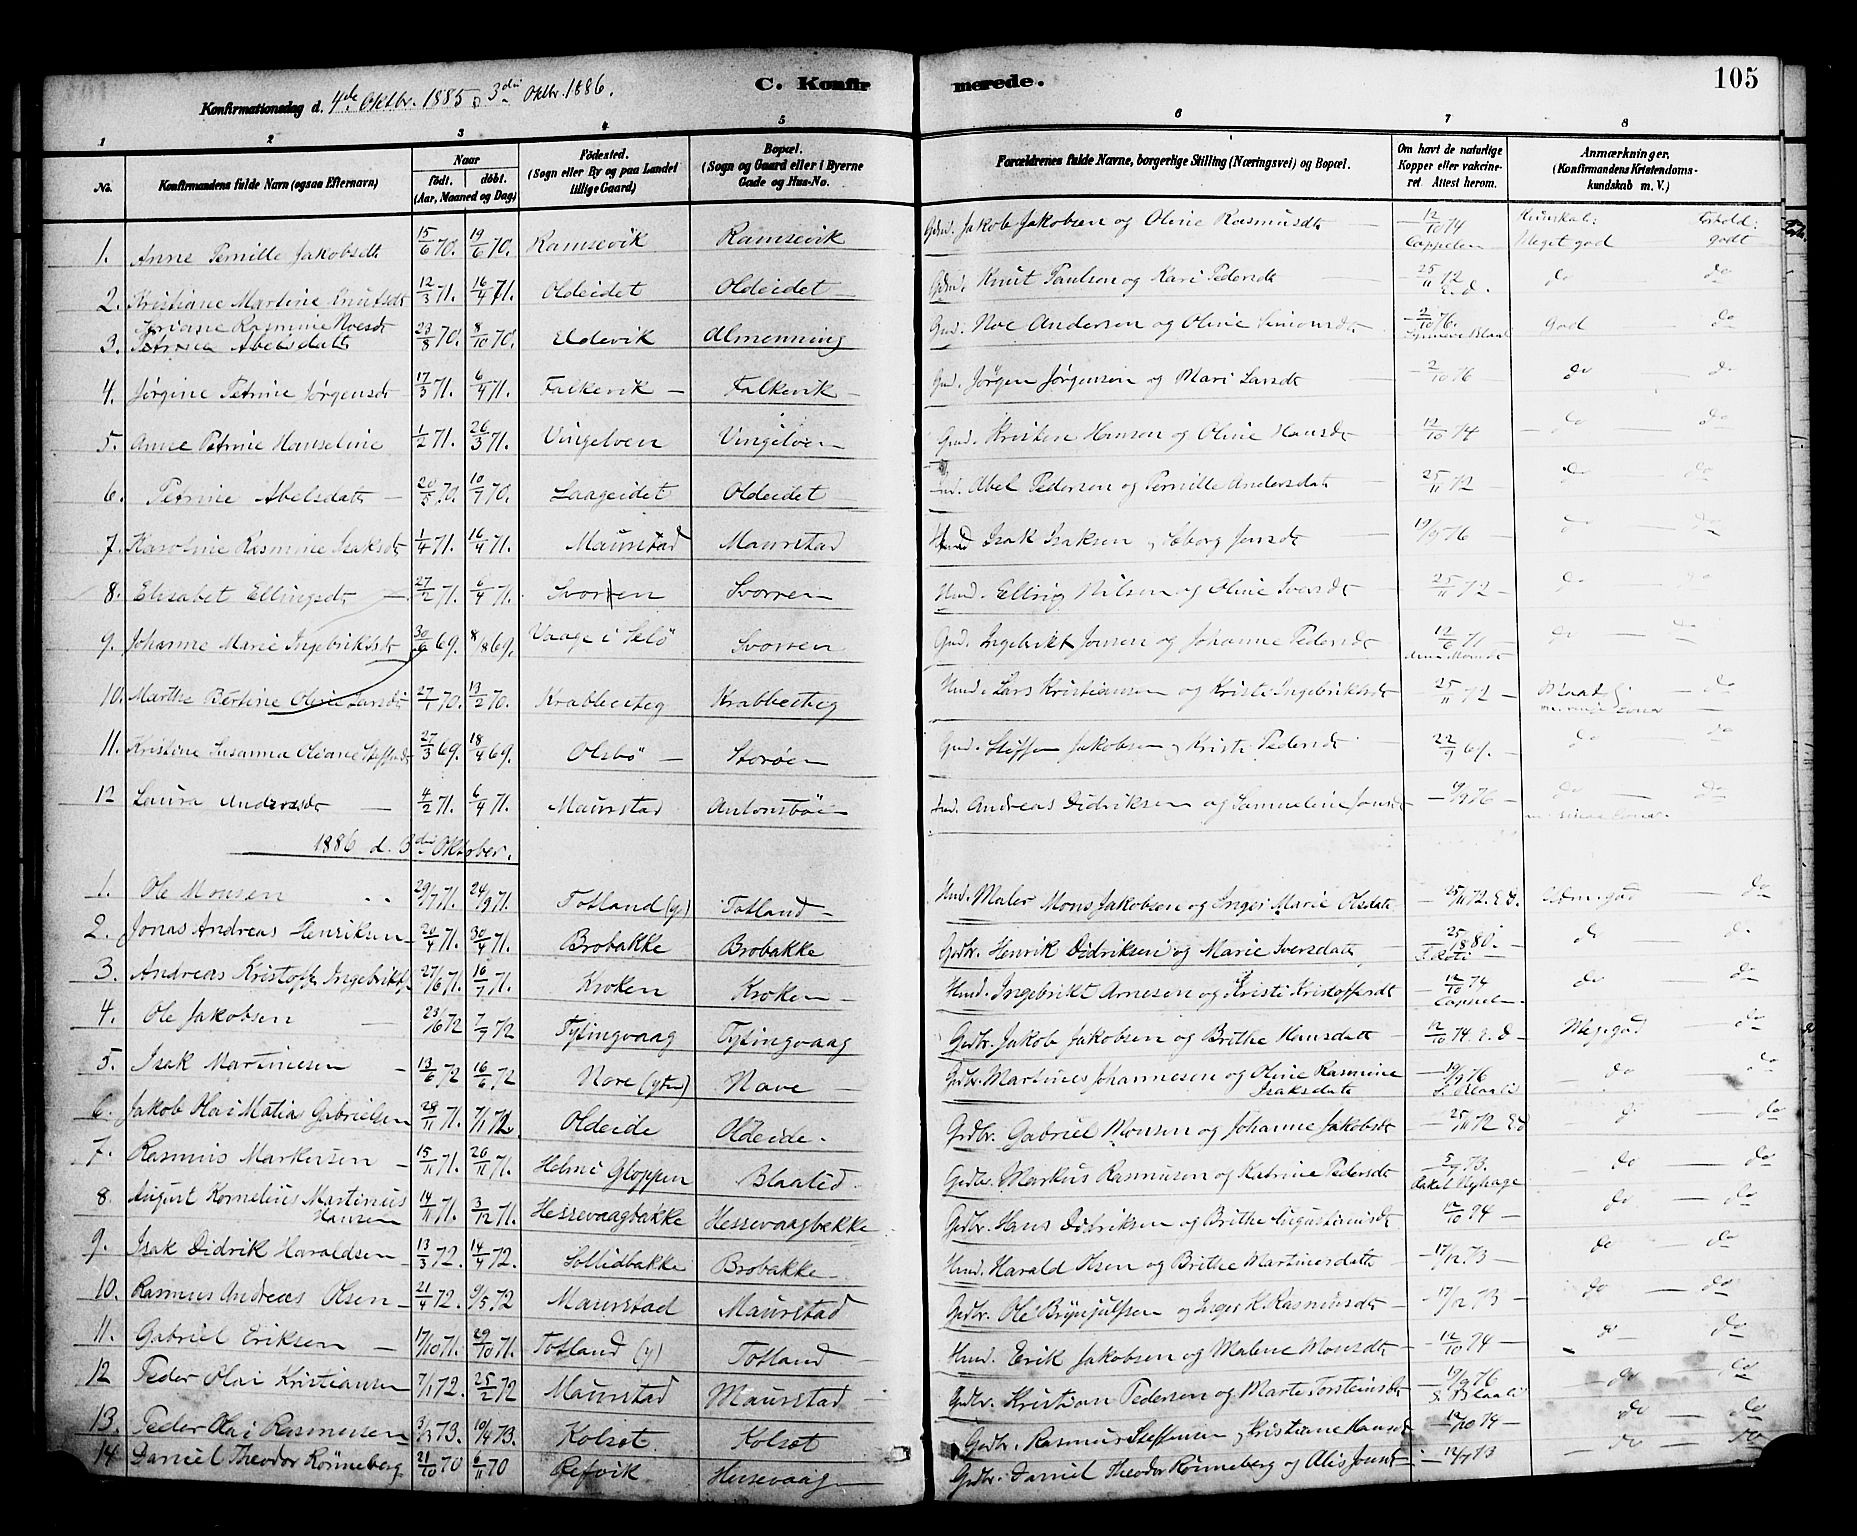 105
C. Konfirmerede.
Konfirmationsdag d. 4de Oktbr. 1885 3die Oktbr. 1886.
1 2 3 4 5 6 7 8
No.
Konfirmandens fulde Navn (ogsaa Efternavn)
Naar
født. døbt.
(Aar, Maaned og Dag)
Födested.
(Sogn eller By og paa Landet
tillige Gaard)
Bopæl.
(Sogn og Gaard eller i Byerne
Gade og Hus-No.
Forældrenes fulde Navne, borgerlige Stilling (Næringsvei) og Bopæl.
Om havt de naturlige
Kopper eller vakcine-
ret Attest herom.
Anmærkninger.
(Konfirmandens Kristendoms-
kundskab m. V.)
1. Anne Pernille Jakobsdt 15/6 70. 19/6 70. Ramsevik Ramsevik Jakob Jakobsen og Oline Rasmusdt 12/10 74 Cappelen Meget god godt
2. Kristiane Martine Knutsdt 12/3 71. 16/4 71. Oldeidet Oldeidet Knut Paulsen og Kari Pedersdt 25/11 72 do do
3. Petrine Abelsdatt 23/8 70. 8/10 70. Eldevik Almenning Noe Andersen og Oline Simonsdt 2/10 76. God do
4. Jørgine Petrine Jørgensdt 17/3 71. 6/4 71. Falkevik Falkevik Jørgen Jørgensen og Mari Larsdt 2/10 76 do do
5. Anne Petrine Hanseline 1/2 71. 26/3 71. Vingelven Vingelven Kristen Hansen og Oline Hansdt 12/10 74 do do
6. Petrine Abelsdatt 20/5 70. 10/7 70. Laageidet Oldeidet Abel Pedersen og Pernille Andersdatt 25/11 72 do do
7. Karoline Rasmine Isaksdt 1/4 71. 16/4 71. Maurstad Maurstad Isak Isaksen Jensdt 19/9 76 do do
8. Elisabet Ellingsdt 27/2 71. 6/4 71. Svorren Svorren Hmd. Elling Nilsen og Oline Iversdt 25/11 72 do do
9. Johanne Marie Ingebriktsdt 30/6 69. 8/8 69. Vaage i Selö Svorren Ingebrikt Jonsen og Johanne Pedersdt 12/6 71 do do
10. Marthe Bertine Oline Larsdt 27/1 70. 13/2 70. Krabbesteg Krabbesteg Hmd. Lars Kristiansen og Kristi Ingebriktsdt 25/11 72 do
11. Kristine Susanna Oliane Steffensdt 27/3 69. 18/4 69. Olsbö Storöen Steffen Jakobsen Kristi Pedersdt do do
12 Laura Andersdt 4/2 71. 6/4 71. Maurstad Antonsböen Andreas Didriksen og Samueline Jonsdt 9/9 76 do do
1886 d. 3die Oktober.
1. Ole Monsen 29/7 71. 24/9 71. Totland (y) Totland Hmd. Maler Mons Jakobsen og Inger Marie Olsdatt 25/11 72. E.D. do
2. Jonas Andreas Henriksen 20/4 71. 30/4 71. Brobakke Brobakke Grdbr. Henrik Didriksen og Marie Iversdatt do do
3. Andreas Kristoffer Ingebriktsen 27/6 71. 16/7 71. Kroken Kroken Hmd. Ingebrikt Arnesen og Kristi Kristoffersdt 12/10 74 Cappelen do do
4. Ole Jakobsen 23/6 72 7/7 72 Tytingvaag Tytingvaag Grdbr. Jakob Jakobsen og Brithe Hansdatt 12/10 74. E.D Meg. god do
5. Isak Martinesen 13/6 72 16/6 72 Nore (ytre) Nave Grdbr. Martines Johannesen og Oline Rasmine Isaksdatt 19/9 76 do do
6. Jakob Olai Matias Gabrielsen 28/11 71. 7/1 72. Oldeide Oldeide. Grdbr. Gabriel Monsen og Johanne Jakobsdt 25/11 72 ED do do
7. Rasmus Markusen 15/11 71. 26/11 71. Helmi Gloppen Blaalid Grdbr. Markus Rasmusen og Katrine Pedersdt 73. do do
8 August Kornelius Martinius Hansen 14/11 71. 3/12 71. Hessevaagbakke Hessevaagbakke Grdbr. Hans Didriksen og Brithe Augustinusdt 12/10 74 do do
9. Isak Didrik Haraldsen 13/3 72. 14/4 72. Sollidbakke Brobakke Hmd. Harald Olsen og Brithe Martinesdatt 17/12 73 do do
10. Rasmus Andreas Olsen 21/4 72. 9/5 72 Maurstad Maurstad Grdbr. Ole Brynjulfsen og Inger K. Rasmusdt 17/12 73 do do
11. Gabriel Eriksen 17/10 71. 29/10 71. Totland (y) Totland Hmd. Erik Jakobsen og Malene Monsdt 12/10 74 do do
12 Peder Olai Kristiansen 7/1 72. 25/2 72 Maurstad Maurstad Grdbr. Kristian Pedersen og Marte Torsteinsdt 19/9 76 S. Blaalid do do
13. Peder Olai Rasmusen 3/3 73. 10/4 73. Kolset Kolset Grdbr. Rasmus Steffensen Kristiane Hansdt 12/10 74 do do
14 Daniel Theodor Rönneberg 21/10 70 6/11 70 Refvik Hessevaag Grdbr. Daniel Theodor Rönneberg og Alis Jonsdt 12/7 73 do do